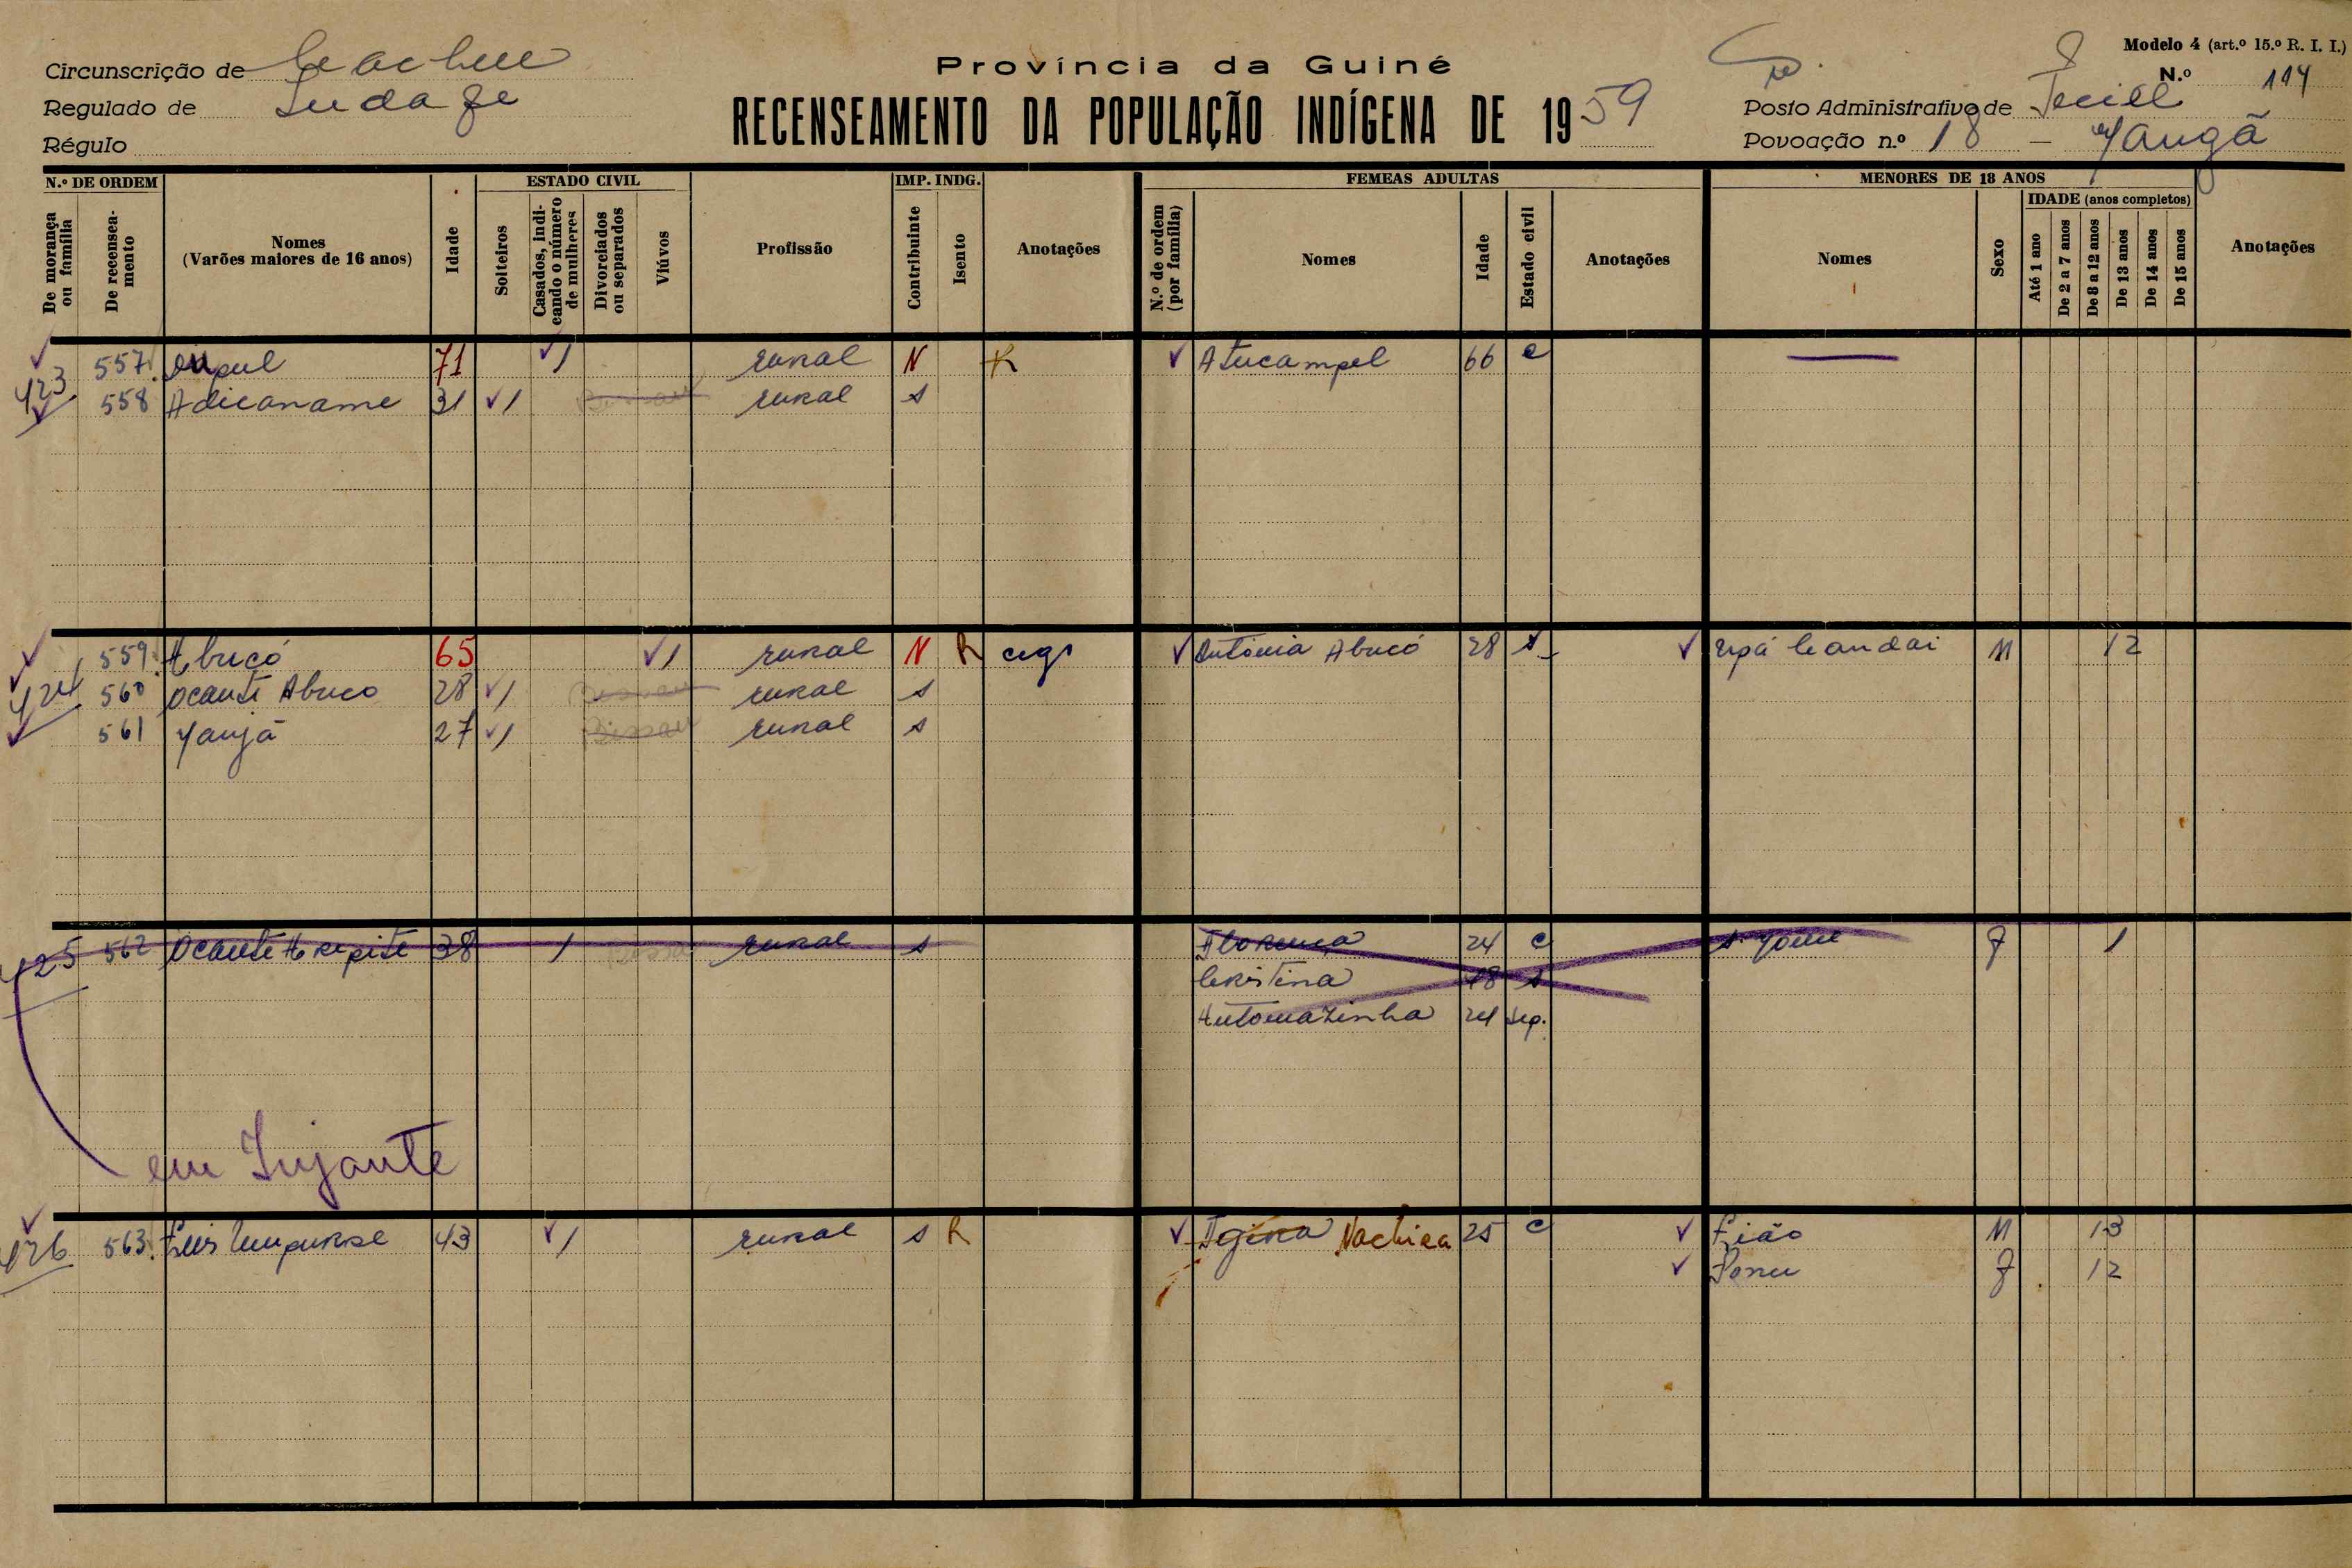 Modelo 4 (art.º 15.º R. I. I.)
Província da Guiné
Circunscrição de Cacheu
N.º 114
Regulado de
RECENSEAMENTO DA POPULAÇÃO INDÍGENA DE 1959
Posto Administrativo de
Régulo
Povoação n.º 18 - Yangã
N.º DE ORDEM ESTADO CIVIL IMP. INDG. FEMEAS ADULTAS MENORES DE 18 ANOS
IDADE (anos completos)
De morança ou família De recenseamento Nomes (Varões maiores de 16 anos) Idade Solteiros Casados, indicando o número de mulheres Divorciados ou separados Viúvos Profissão Contribuinte Isento Anotações N.º de ordem (por família) Nomes Idade Estado civil Anotações Nomes Sexo Até 1 ano De 2 a 7 anos De 8 a 12 anos De 13 anos De 14 anos De 15 anos Anotações
423 557 71 1 rural N R Atucampel 66 c
558 Adicaname 31 1 rural s
424 559 Abucó 65 1 rural N R cego Antónia Abucó 28 s M 12
560 Ocante Abuco 28 1 Bissau rural s
561 Yanjã 27 1 Bissau rural s
425 562 Ocante 38 1 rural s Florença 24 c F 1
Cristina 18 s
Antoniazinha 24 sep.
em Injante
426 563 Luis 43 1 rural s R Nachica 25 c Lião M 13
F 12